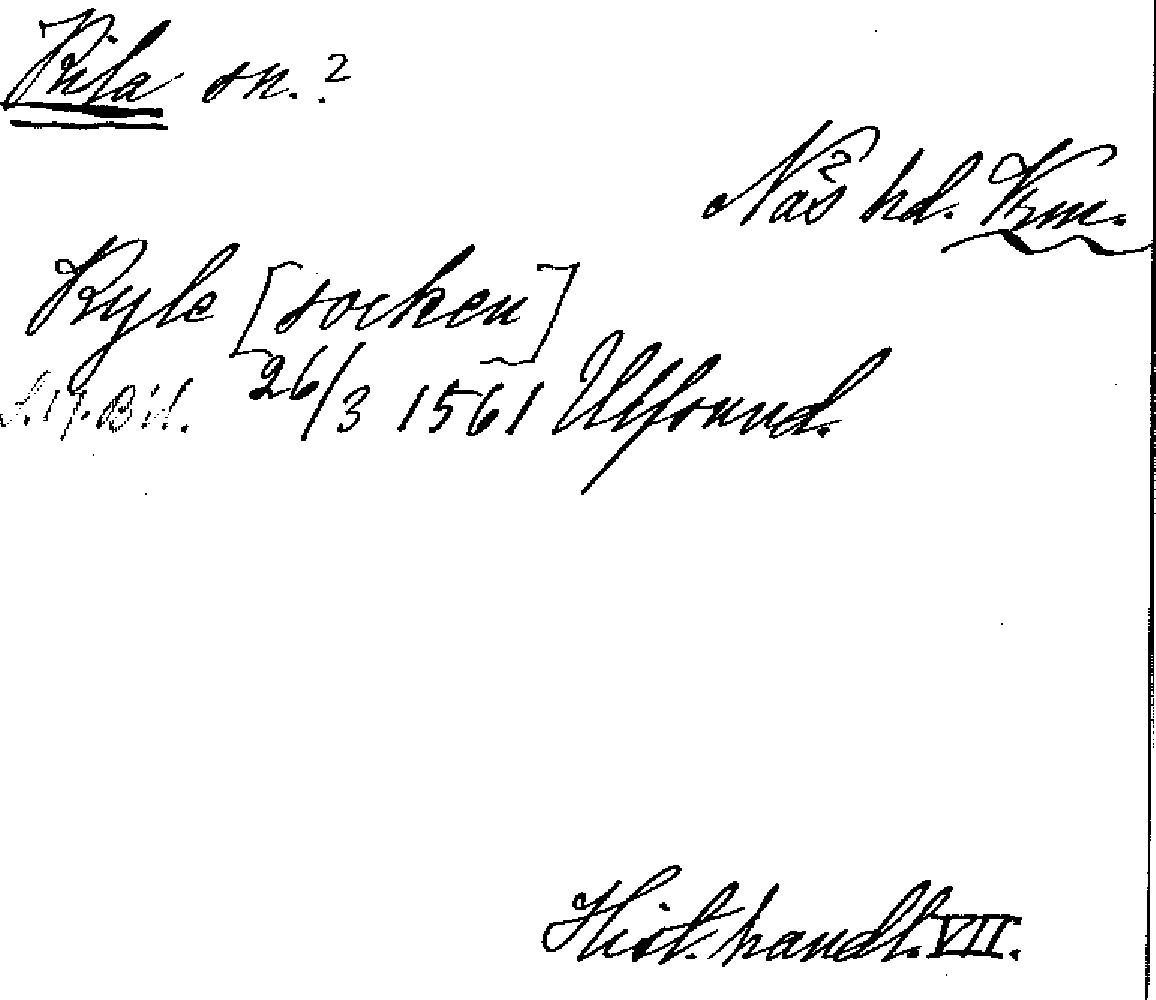 Kila sn.?
Näs hd. Vrm.
Kyle [socken]
S. 17. Bil. 26/3 1561 Ulfsund.
Hist. handl. VII.